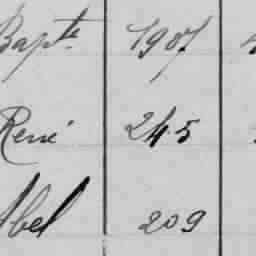 Bapte 1907
René 245
Abel 209